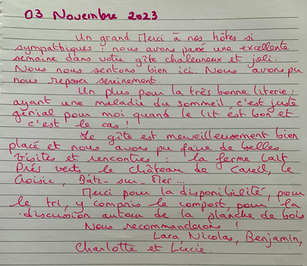 03 Novembre 2023
Un grand Merci à nos hôtes si
sympathiques : nous avons passé une excellente
semaine dans votre gîte chaleureux et joli.
Nous nous sentons bien ici. Nous avons pu
nous reposer sereinement.
Un plus pour la très bonne literie :
ayant une maladie du sommeil c'est juste
génial pour moi quand le lit est bon et
c'est le cas !
Le gîte est merveilleusement bien
placé et nous avons pu faire de belles
visites et rencontres : la ferme Lait
Prés vert, le château de Careil, le
Croisic, Batz-sur-Mer...
Merci pour la disponibilité, pour
le tri, y compris le compost, pour la
discussion autour de la planche de bois
Nous recommanderons !
Lara, Nicolas, Benjamin,
Charlotte et Lucie.